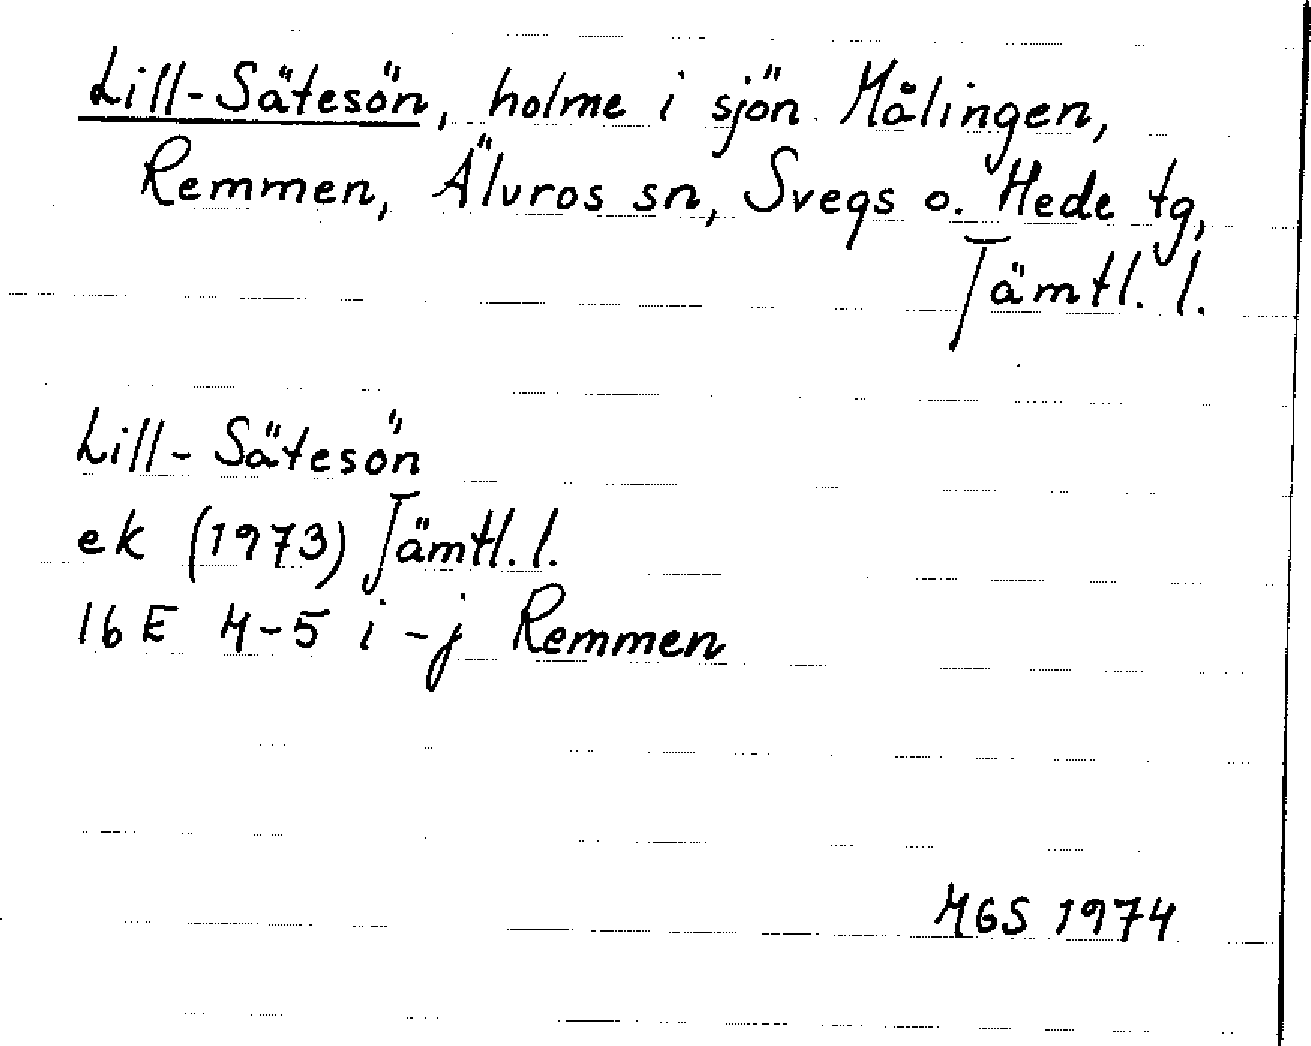 Lill-Sätesön, holme i sjön Målingen,
Remmen, Älvros sn, Svegs o. Hede tg,
Jämtl. l.
Lill-Sätesön
ek (1973) Jämtl. l.
16 E 4-5 i-j Remmen
MGS 1974